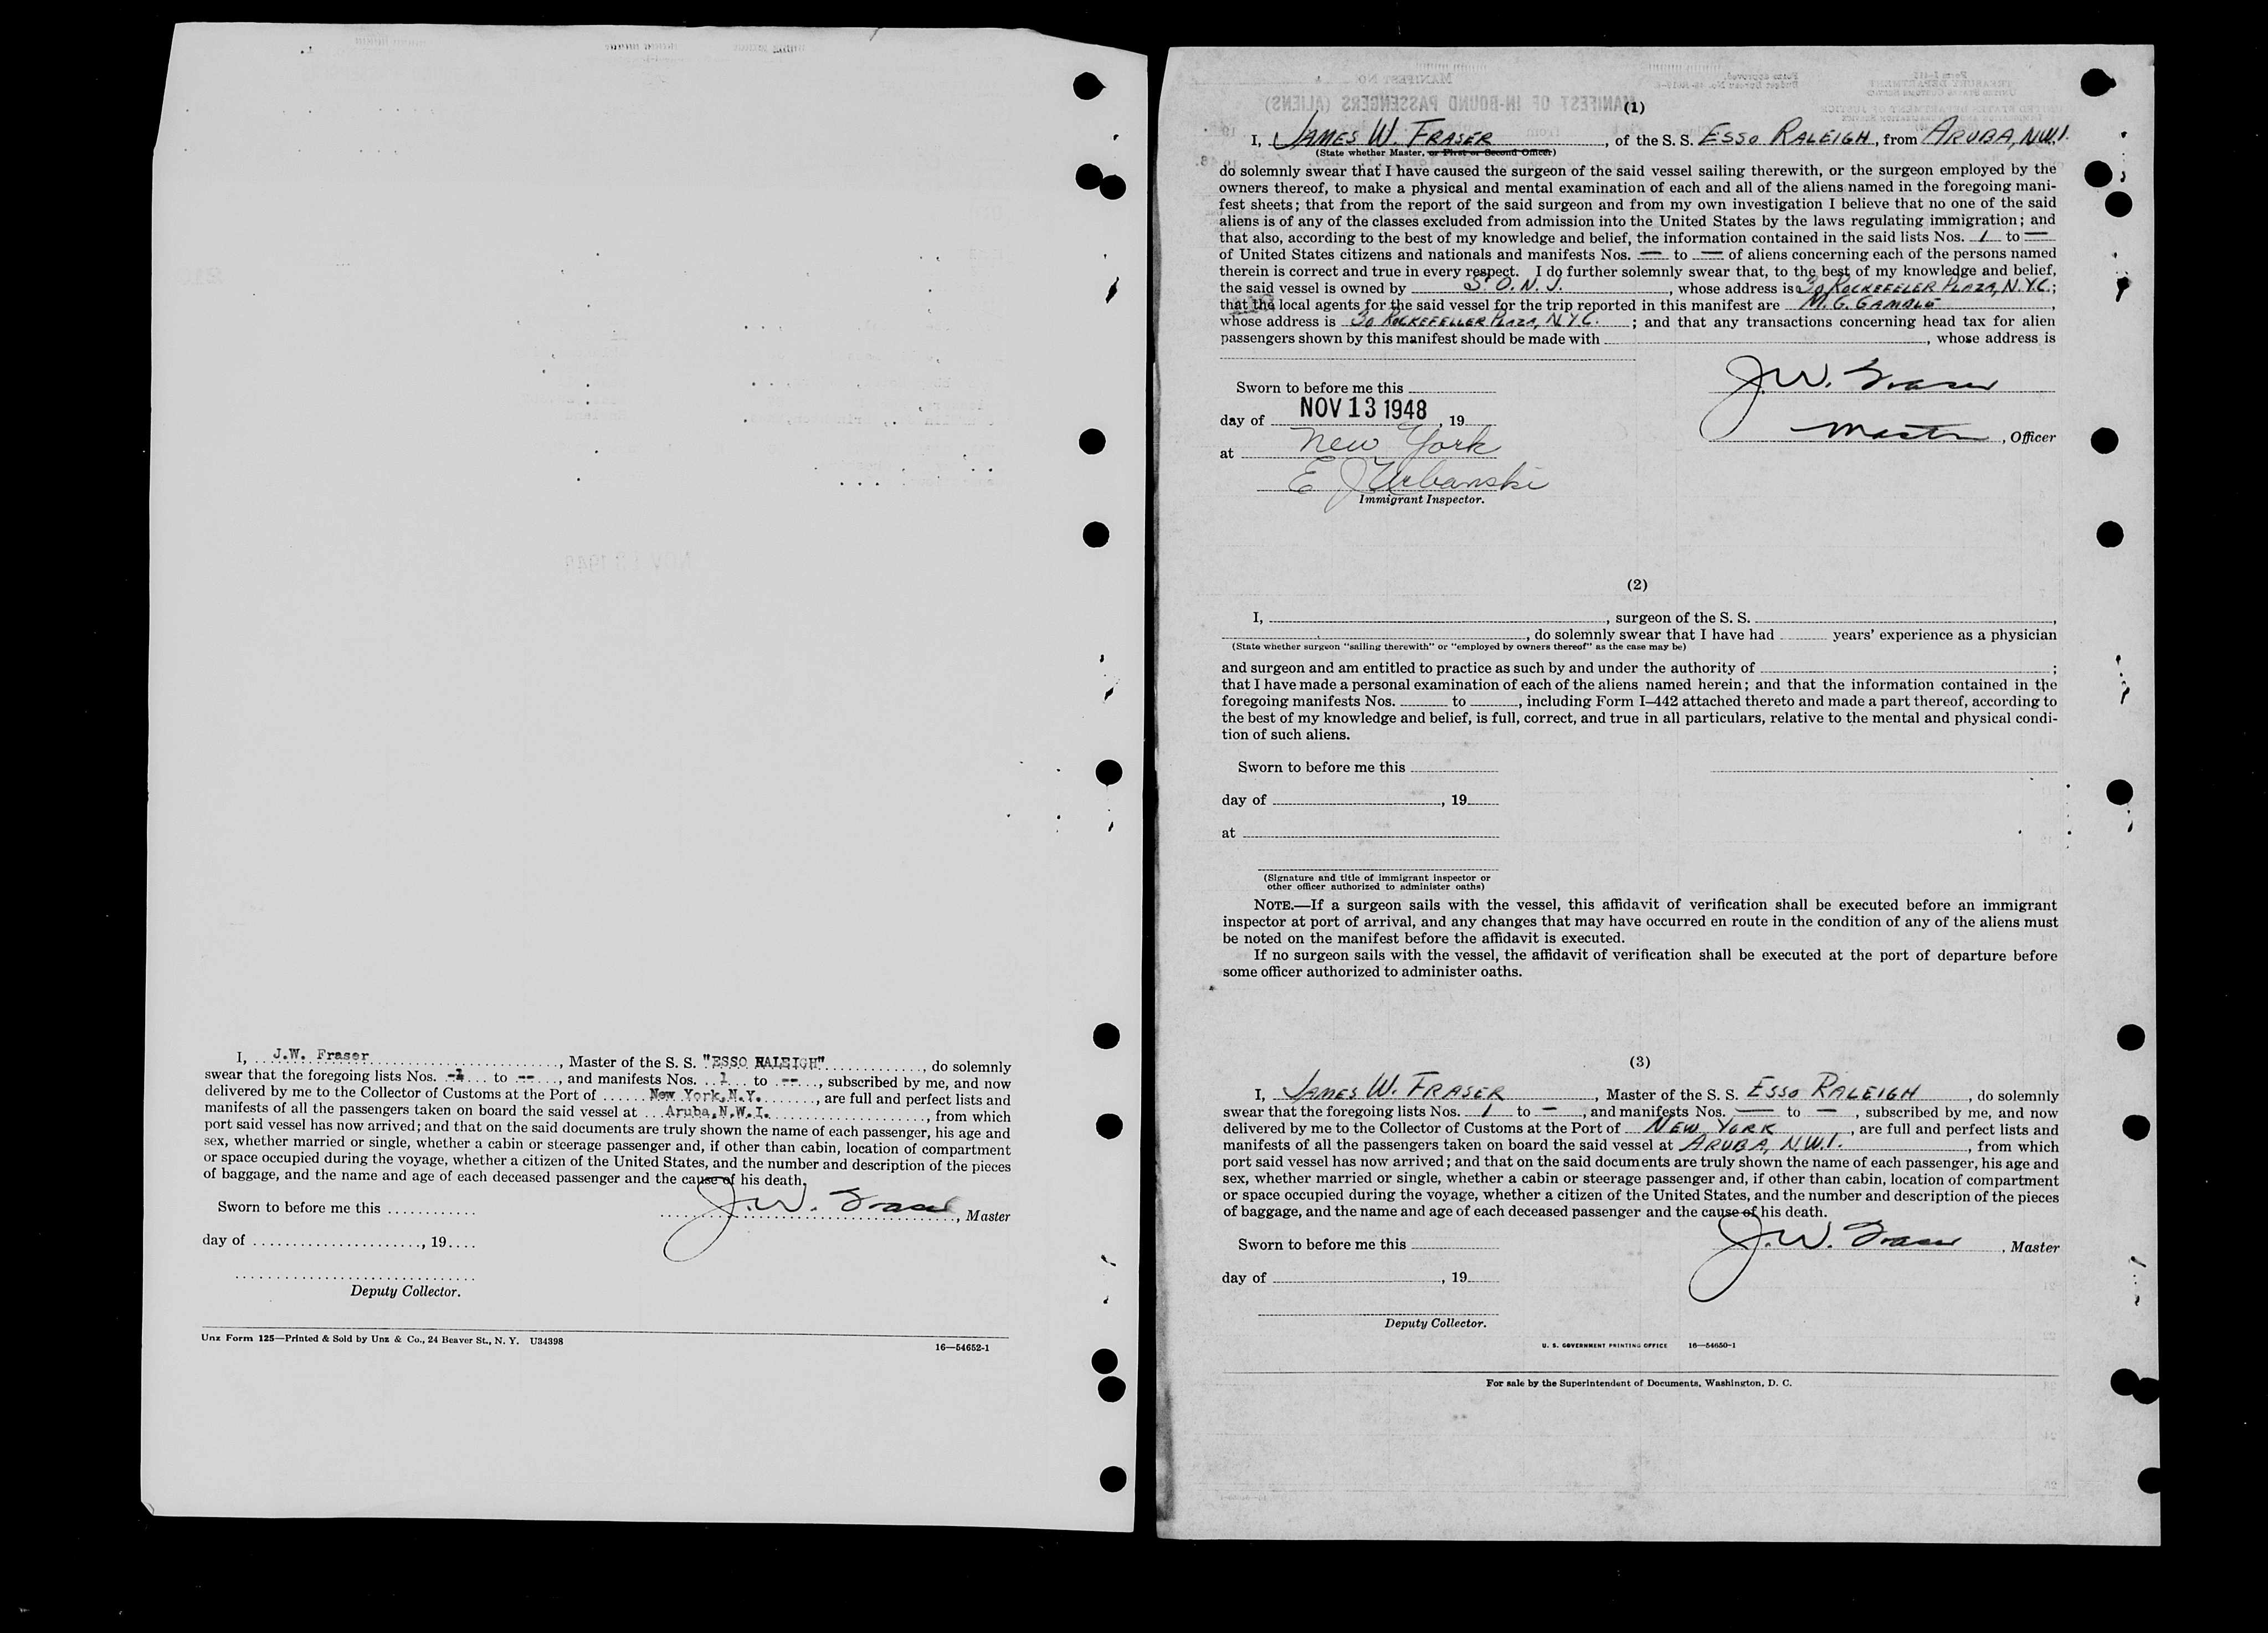 I, J.W. Fraser, Master of the S. S. "ESSO RALEIGH", do solemnly
swear that the foregoing lists Nos. -1 to --, and manifests Nos. 1 to --, subscribed by me, and now
delivered by me to the Collector of Customs at the Port of New York,N.Y., are full and perfect lists and
manifests of all the passengers taken on board the said vessel at Aruba,N.W.I., from which
port said vessel has now arrived; and that on the said documents are truly shown the name of each passenger, his age and
sex, whether married or single, whether a cabin or steerage passenger and, if other than cabin, location of compartment
or space occupied during the voyage, whether a citizen of the United States, and the number and description of the pieces
of baggage, and the name and age of each deceased passenger and the cause of his death.
Sworn to before me this
J.W. Fraser, Master
day of , 19
Deputy Collector.
Unz Form 125—Printed & Sold by Unz & Co., 24 Beaver St., N. Y. U34398
16—54652-1
MANIFEST OF IN-BOUND PASSENGERS (ALIENS)
(1)
I, JAMES W. FRASER, of the S. S. ESSO RALEIGH, from ARUBA, N.W.I.
(State whether Master, or First or Second Officer)
do solemnly swear that I have caused the surgeon of the said vessel sailing therewith, or the surgeon employed by the
owners thereof, to make a physical and mental examination of each and all of the aliens named in the foregoing mani-
fest sheets; that from the report of the said surgeon and from my own investigation I believe that no one of the said
aliens is of any of the classes excluded from admission into the United States by the laws regulating immigration; and
that also, according to the best of my knowledge and belief, the information contained in the said lists Nos. 1 to —
of United States citizens and nationals and manifests Nos. — to — of aliens concerning each of the persons named
therein is correct and true in every respect. I do further solemnly swear that, to the best of my knowledge and belief,
the said vessel is owned by S.O.N.J., whose address is 30 ROCKEFELLER PLAZA, N.Y.C.;
that the local agents for the said vessel for the trip reported in this manifest are M. G. GAMBLE,
whose address is 30 ROCKEFELLER PLAZA, N.Y.C.; and that any transactions concerning head tax for alien
passengers shown by this manifest should be made with , whose address is
Sworn to before me this
J.W. Fraser
day of NOV 13 1948, 19
Master, Officer
at New York
E J Urbanski
Immigrant Inspector.
(2)
I, , surgeon of the S. S. ,
, do solemnly swear that I have had years' experience as a physician
(State whether surgeon "sailing therewith" or "employed by owners thereof" as the case may be)
and surgeon and am entitled to practice as such by and under the authority of ;
that I have made a personal examination of each of the aliens named herein; and that the information contained in the
foregoing manifests Nos. to , including Form I–442 attached thereto and made a part thereof, according to
the best of my knowledge and belief, is full, correct, and true in all particulars, relative to the mental and physical condi-
tion of such aliens.
Sworn to before me this
day of , 19
at
(Signature and title of immigrant inspector or
other officer authorized to administer oaths)
NOTE.—If a surgeon sails with the vessel, this affidavit of verification shall be executed before an immigrant
inspector at port of arrival, and any changes that may have occurred en route in the condition of any of the aliens must
be noted on the manifest before the affidavit is executed.
If no surgeon sails with the vessel, the affidavit of verification shall be executed at the port of departure before
some officer authorized to administer oaths.
(3)
I, JAMES W. FRASER, Master of the S. S. ESSO RALEIGH, do solemnly
swear that the foregoing lists Nos. 1 to —, and manifests Nos. — to —, subscribed by me, and now
delivered by me to the Collector of Customs at the Port of NEW YORK, are full and perfect lists and
manifests of all the passengers taken on board the said vessel at ARUBA, N.W.I., from which
port said vessel has now arrived; and that on the said documents are truly shown the name of each passenger, his age and
sex, whether married or single, whether a cabin or steerage passenger and, if other than cabin, location of compartment
or space occupied during the voyage, whether a citizen of the United States, and the number and description of the pieces
of baggage, and the name and age of each deceased passenger and the cause of his death.
Sworn to before me this
J.W. Fraser, Master
day of , 19
Deputy Collector.
U. S. GOVERNMENT PRINTING OFFICE 16—54650-1
For sale by the Superintendent of Documents, Washington, D. C.